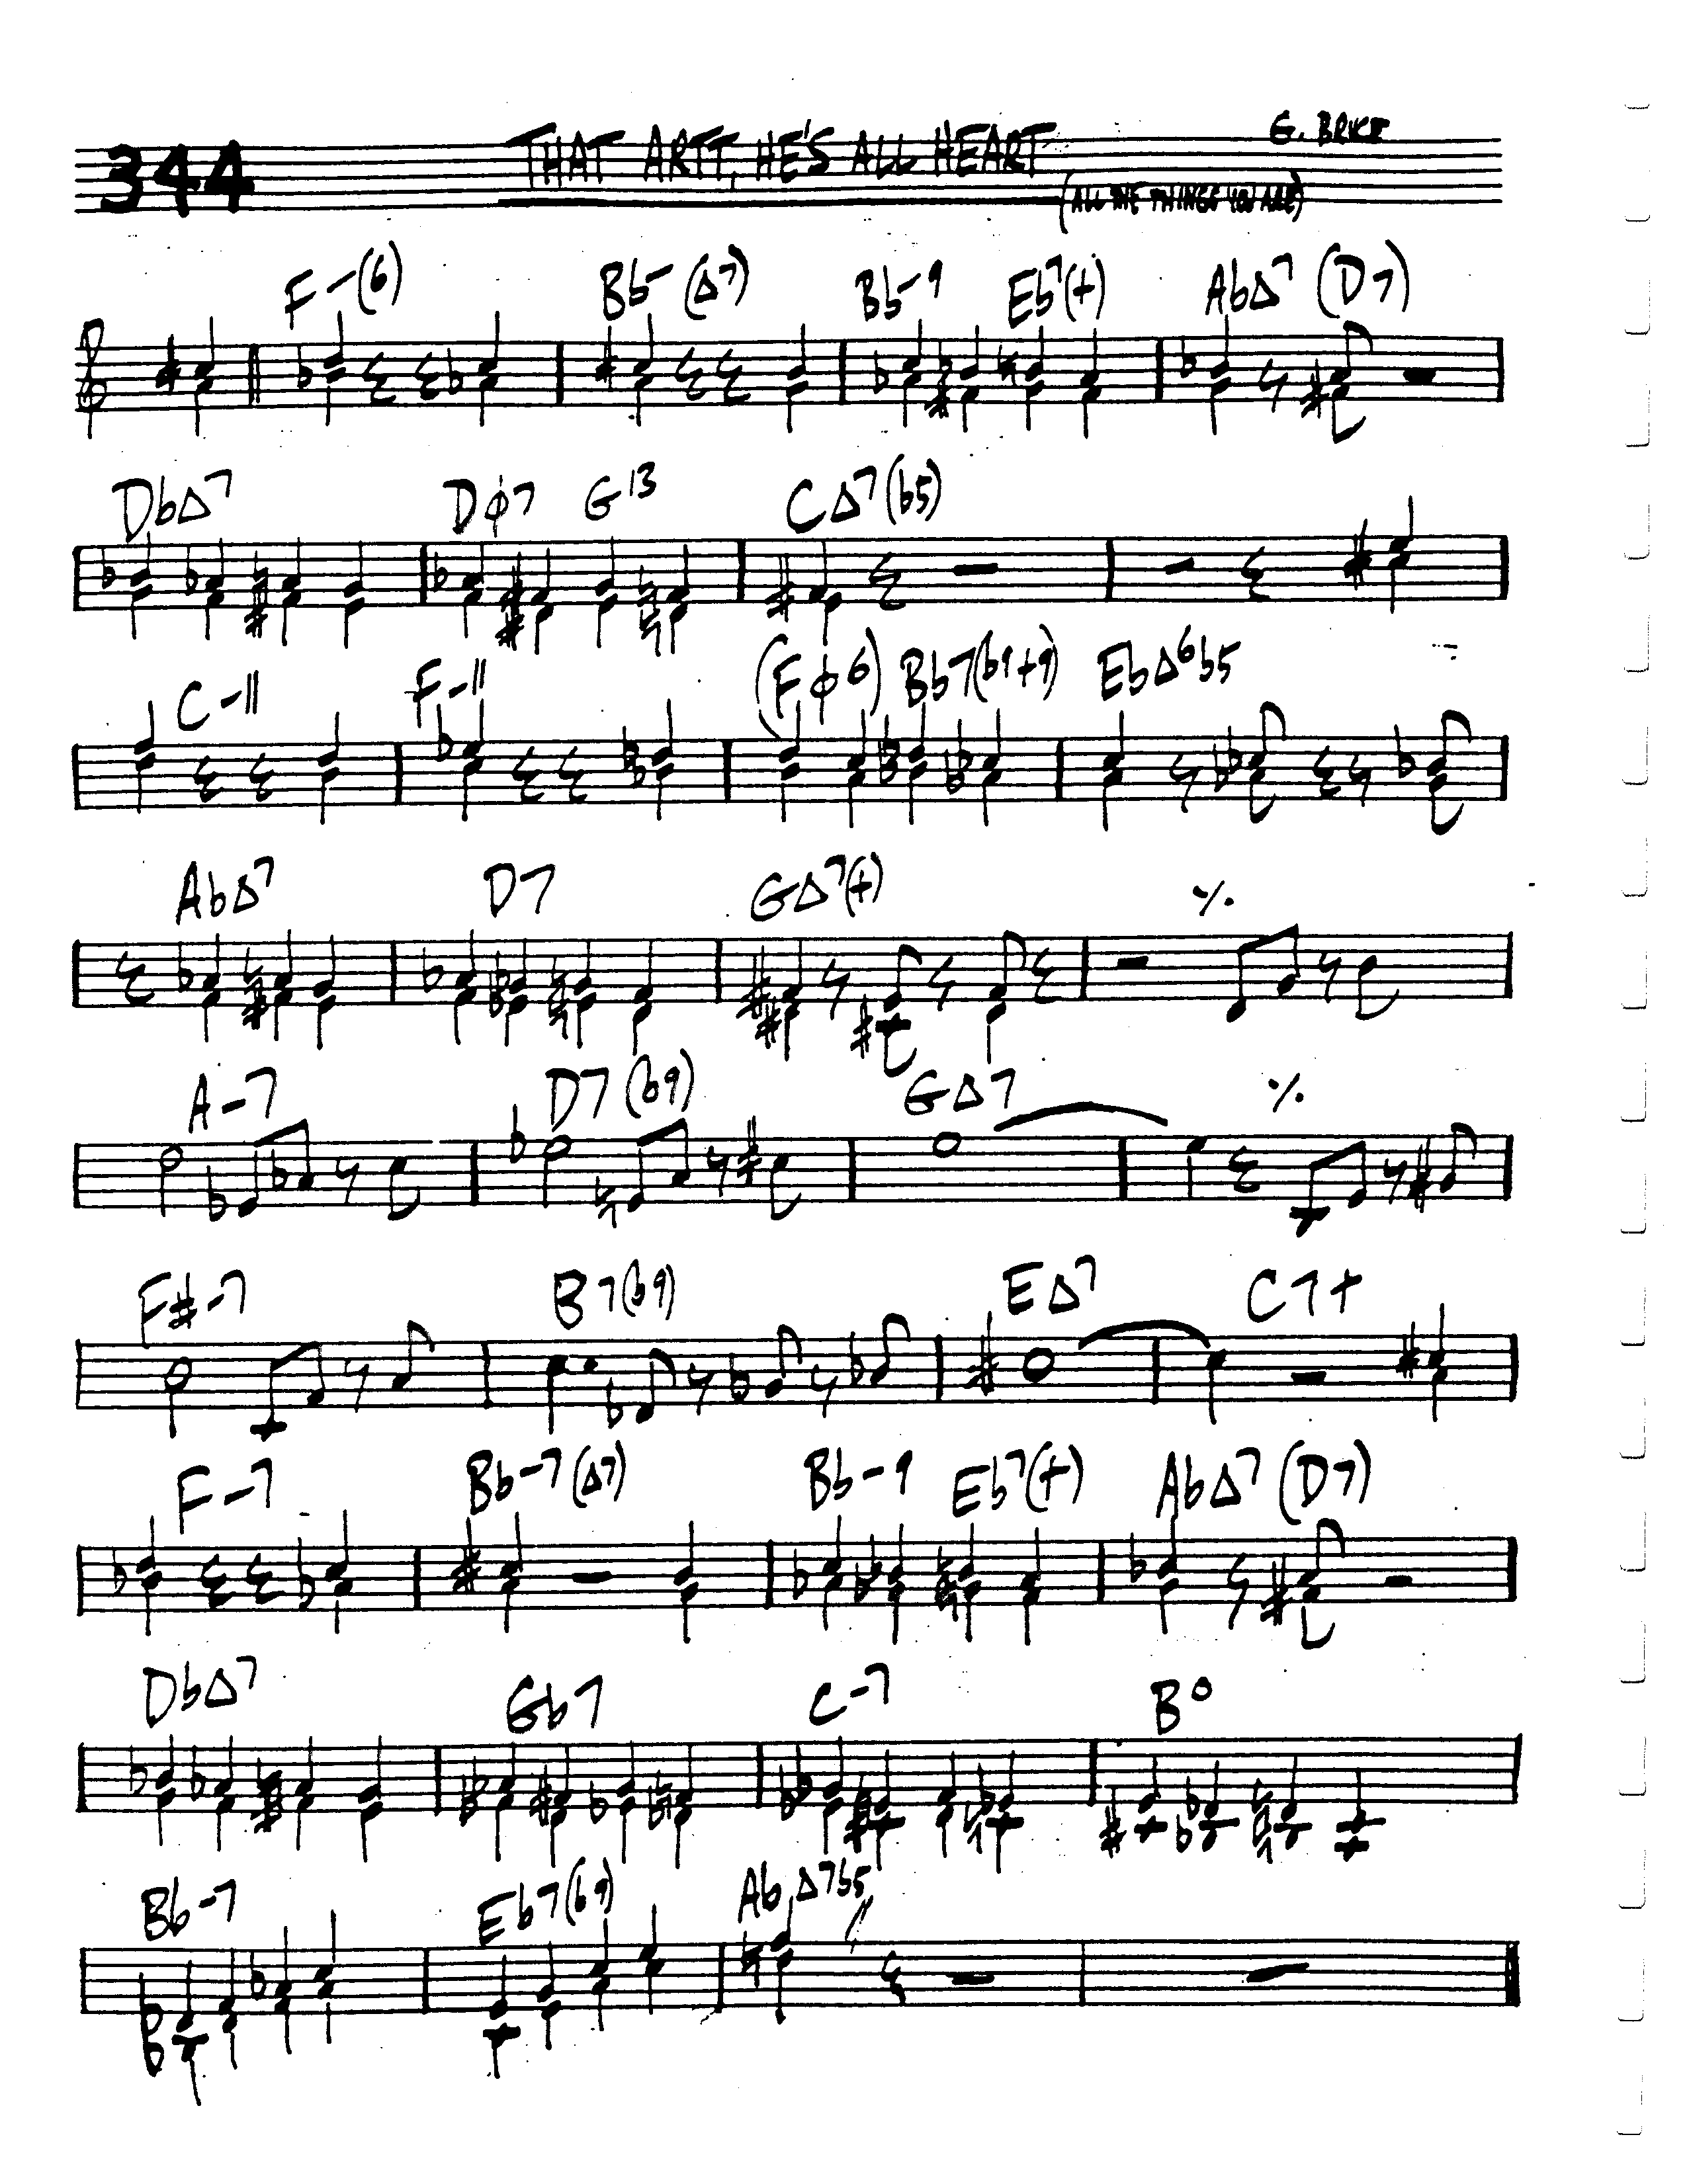 G. BRICE
344 THAT ARTT, HE'S ALL HEART
(ALL THE THINGS YOU ARE)
F-(6) Bb-(Δ7) Bb-9 Eb7(+) AbΔ7 (D7)
DbΔ7 Dø7 G13 CΔ7(b5)
C-11 F-11 (Fø6) Bb7(b9+9) EbΔ6b5
AbΔ7 D7 GΔ7(+) ٪
A-7 D7(b9) GΔ7 ٪
F#-7 B7(b9) EΔ7 C7+
F-7 Bb-7(Δ7) Bb-9 Eb7(+) AbΔ7 (D7)
DbΔ7 Gb7 C-7 B°
Bb-7 Eb7(b9) AbΔ7b5